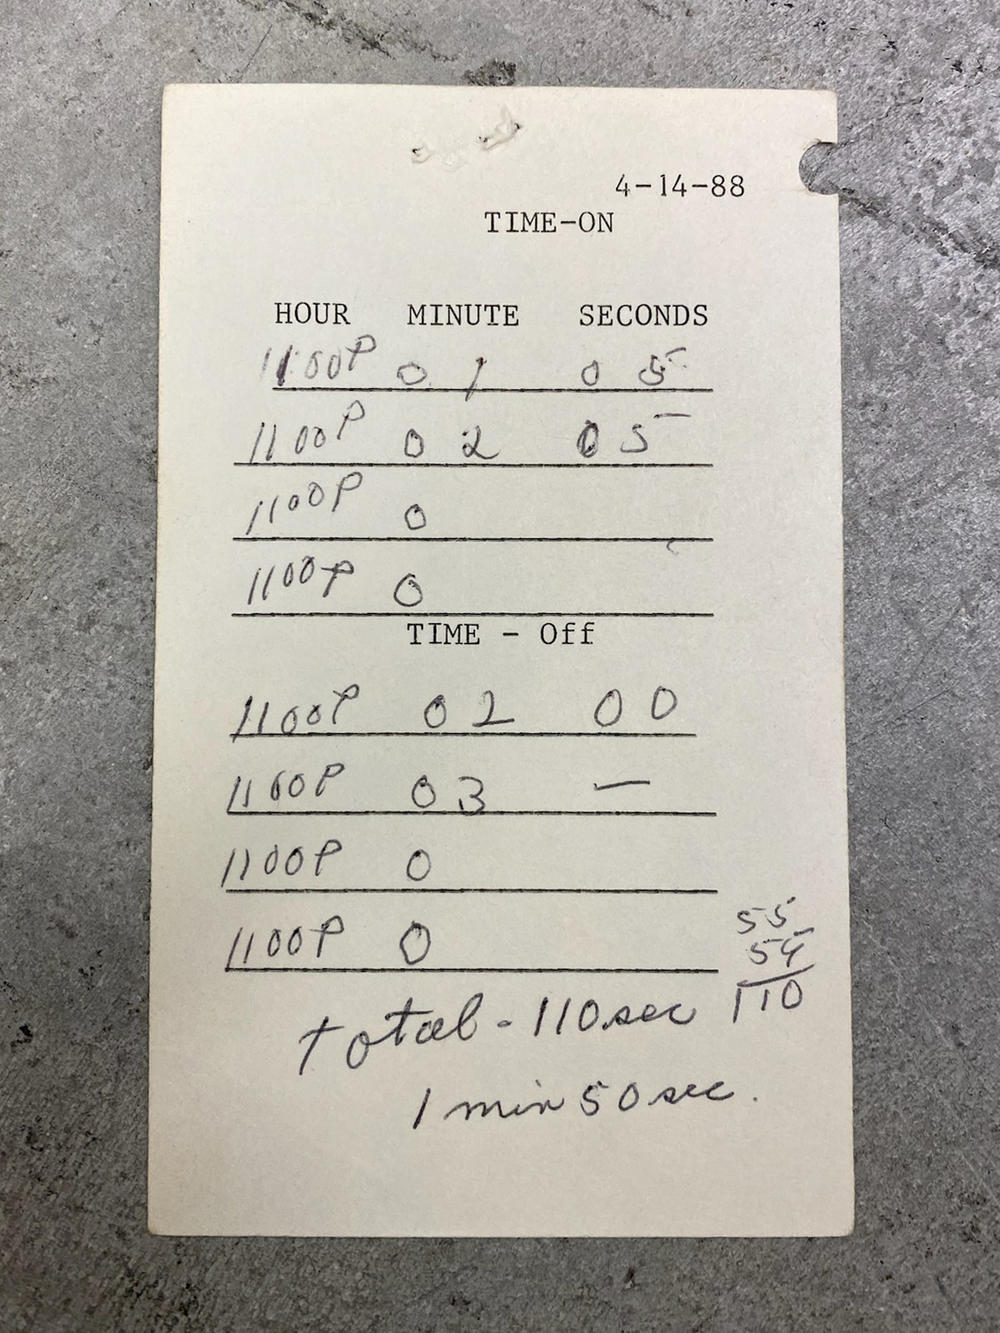 4-14-88
TIME-ON
HOUR MINUTE SECONDS
1100P 0 1 0 5
1100P 0 2 0 5
1100P 0
1100P 0
TIME - Off
1100P 0 2 0 0
1100P 0 3 —
1100P 0
1100P 0
55
55
110
total - 110 sec
1 min 50 sec.